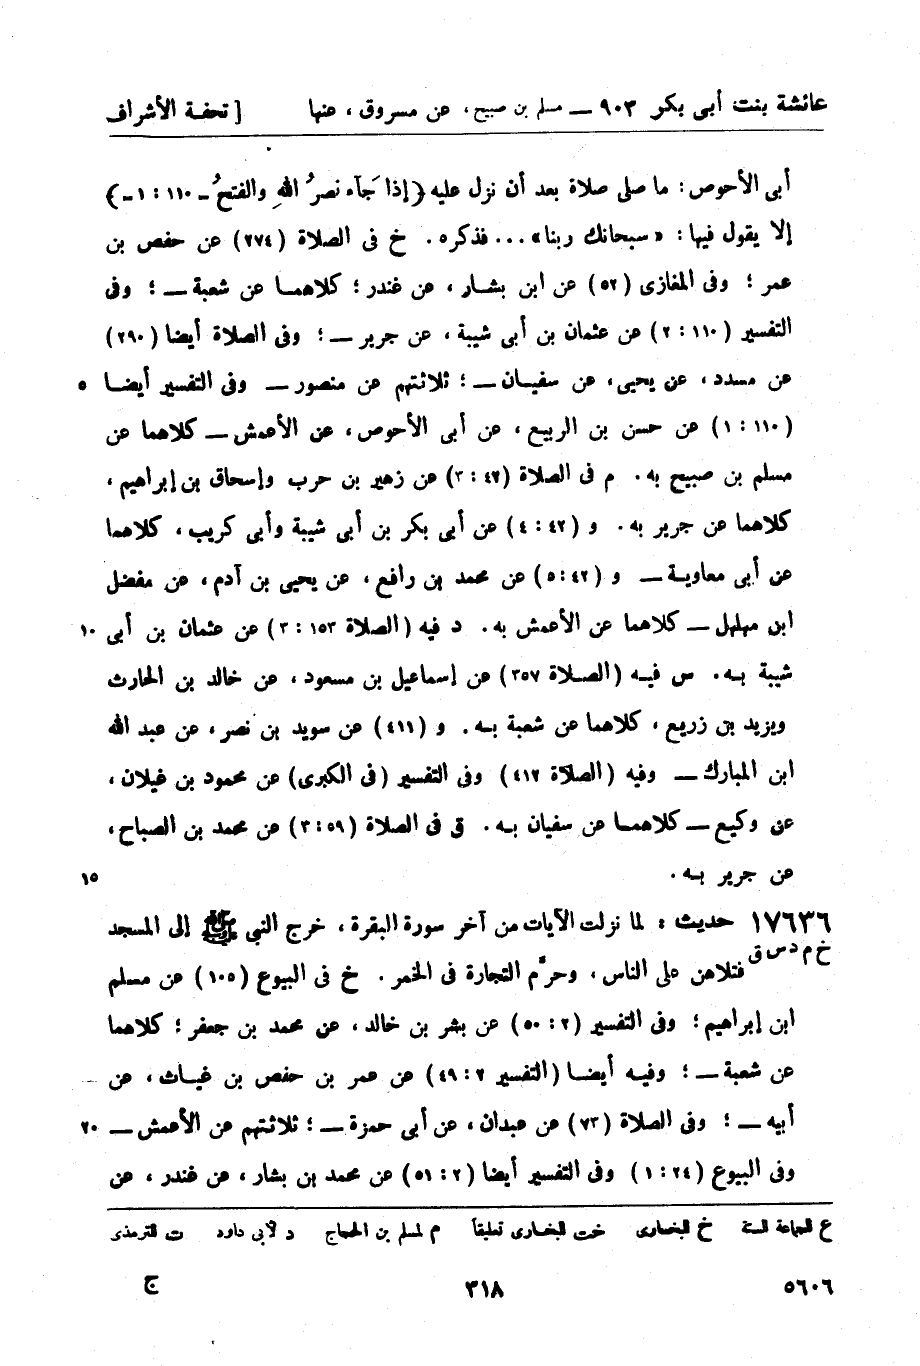 عائشة بنت أبى بكر ٩٠٣ ــ مسلم بن صبيح، عن مسروق، عنها [ تحفة الأشراف
أبى الأحوص: ما صلى صلاة بعد أن نزل عليه ﴿إذا جآء نصرُ اللهِ والفتحُ ـ ١١٠ : ١ ـ﴾
إلا يقول فيها: «سبحانك ربنا» ... فذكره. خ فى الصلاة (٢٧٤) عن حفص بن
عمر؛ وفى المغازى (٥٢) عن ابن بشار، عن غندر؛ كلاهما عن شعبة ــ؛ وفى
التفسير (١١٠ : ٢) عن عثمان بن أبى شيبة، عن جرير ــ؛ وفى الصلاة أيضا (٢٩٠)
عن مسدد، عن يحيى، عن سفيان ــ؛ ثلاثتهم عن منصور ــ وفى التفسير أيضا ٥
(١١٠ : ١) عن حسن بن الربيع، عن أبى الأحوص، عن الأعمش ــ كلاهما عن
مسلم بن صبيح به. م فى الصلاة (٤٢ : ٣) عن زهير بن حرب وإسحاق بن إبراهيم،
كلاهما عن جرير به. و (٤٢ : ٤) عن أبى بكر بن أبى شيبة وأبى كريب، كلاهما
عن أبى معاوية ــ و (٤٢ : ٥) عن محمد بن رافع، عن يحيى بن آدم، عن مفضل
ابن مهلهل ــ كلاهما عن الأعمش به. د فيه (الصلاة ١٥٣ : ٣) عن عثمان بن أبى ١٠
شيبة به. س فيه (الصلاة ٣٥٧) عن إسماعيل بن مسعود، عن خالد بن الحارث
ويزيد بن زريع، كلاهما عن شعبة به. و (٤١١) عن سويد بن نصر، عن عبد الله
ابن المبارك ــ وفيه (الصلاة ٤١٢) وفى التفسير (فى الكبرى) عن محمود بن غيلان،
عن وكيع ــ كلاهما عن سفيان به. ق فى الصلاة (٥٩ : ٣) عن محمد بن الصباح،
عن جرير به. ١٥
١٧٦٣٦ حديث: لما نزلت الآيات من آخر سورة البقرة، خرج النبى ﷺ إلى المسجد
خ م د س ق فتلاهن على الناس، وحرّم التجارة فى الخمر. خ فى البيوع (١٠٥) عن مسلم
ابن إبراهيم؛ وفى التفسير (٢ : ٥٠) عن بشر بن خالد، عن محمد بن جعفر؛ كلاهما
عن شعبة ــ؛ وفيه أيضا (التفسير ٢ : ٤٩) عن عمر بن حفص بن غياث، عن
أبيه ــ؛ وفى الصلاة (٧٣) عن عبدان، عن أبى حمزة ــ؛ ثلاثتهم عن الأعمش ــ ٢٠
وفى البيوع (٢٤ : ١) وفى التفسير أيضا (٢ : ٥١) عن محمد بن بشار، عن غندر، عن
ع للجماعة الستة خ للبخارى خت للبخارى تعليقاً م لمسلم بن الحجاج د لأبى داود ت للترمذى
٥٦٠٦ ٣١٨ ج